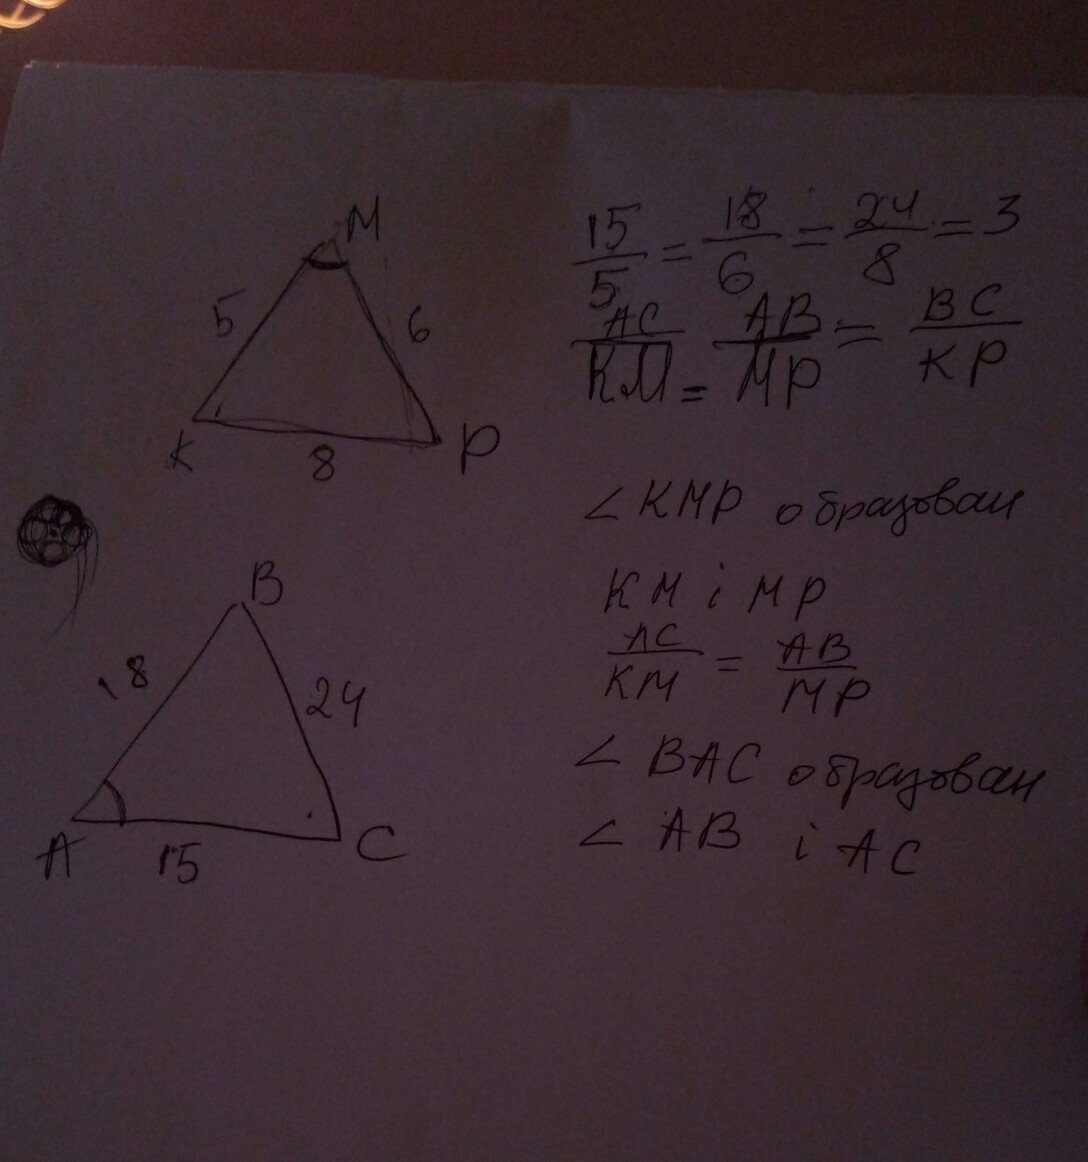 M
5
6
K
8
P
B
18
24
A
15
C
15/5 = 18/6 = 24/8 = 3
AC/KM = AB/MP = BC/KP
∠ KMP образован
KM i MP
AC/KM = AB/MP
∠ BAC образован
∠ AB i AC